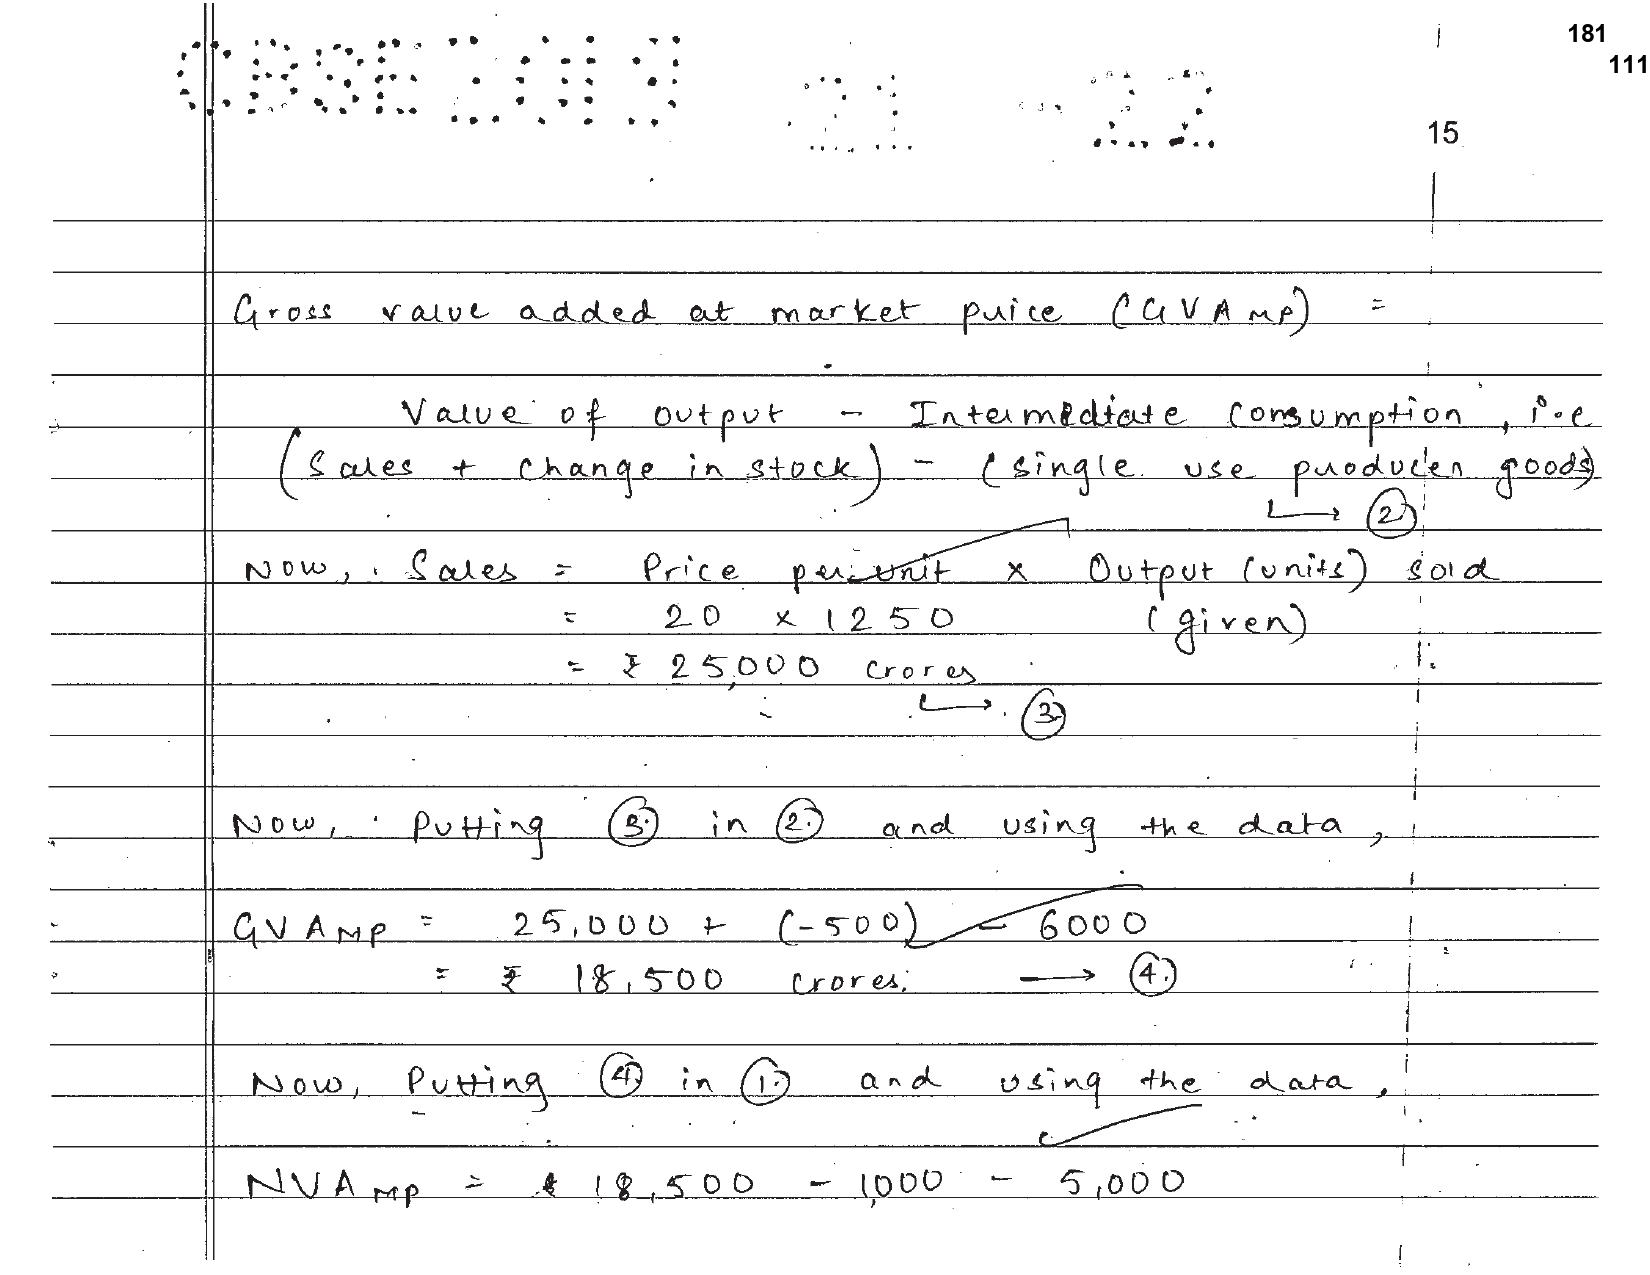 181
111
CBSE 2019 21 - 22
15
Gross value added at market price (GVAMP) =
Value of output - Intermediate Consumption, i.e
(Sales + change in stock) - (single use producer goods)
↳ → ②
Now, Sales = Price per unit × Output (units) sold
= 20 × 1250 (given)
= ₹ 25,000 crores
↳ → ③
Now, Putting ③ in ② and using the data,
GVAMP = 25,000 + (-500) - 6000
= ₹ 18,500 crores. → ④
Now, Putting ④ in ① and using the data,
NVAMP = ₹ 18,500 - 1,000 - 5,000